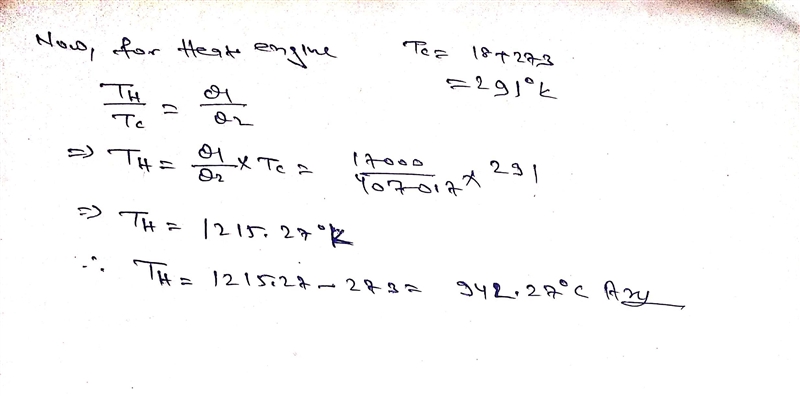 Now, for Heat engine Tc = 18+273
= 291°k
TH/Tc = Q1/Q2
⇒ TH = Q1/Q2 × Tc = 17000/4070.17 × 291
⇒ TH = 1215.27°K
∴ TH = 1215.27 - 273 = 942.27°C Ans